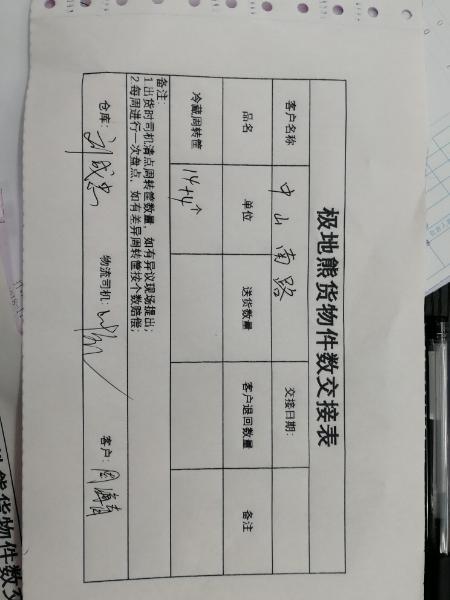 极地熊货物件数交接表
客户名称 中山南路 交接日期:
品名 单位 送货数量 客户退回数量 备注
冷藏周转筐 14+4个
备注:
1.出货时司机清点周转筐数量，如有异议现场提出;
2.每周进行一次盘点，如有差异周转筐按个数赔偿;
仓库: 刘成忠 物流司机: 客户: 周海青
货物件数交